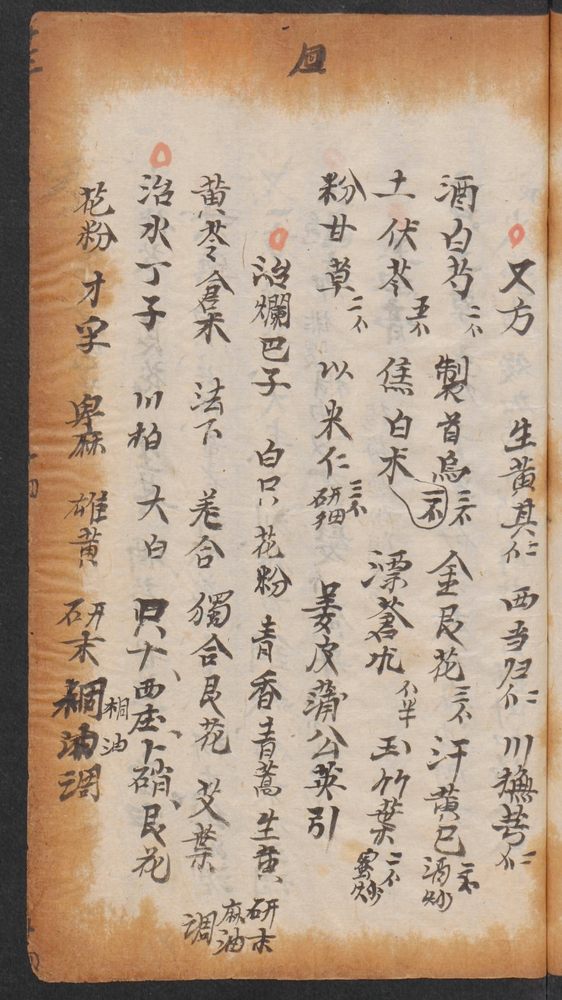 回
又方 生黄其仁 西当归仁 川撫芎仁
酒白芍二不 製首烏三不 金艮花三不 汗黄巴一不酒炒
土伏苓五不 焦白术一不 漂蒼朮不半 玉竹葉二不蜜炒
粉甘草二不 以米仁三不研细 姜皮蒲公英引
治爛巴子 白只 花粉 青香 青蒿 生黄 研末麻油調
黄苓 倉术 法下 羌合 獨合 艮花 艾葉
治水丁子 川柏 大白 只十 西庄 卜硝 艮花
花粉 才字 卑麻 雄黄 研末 桐油調
桐油